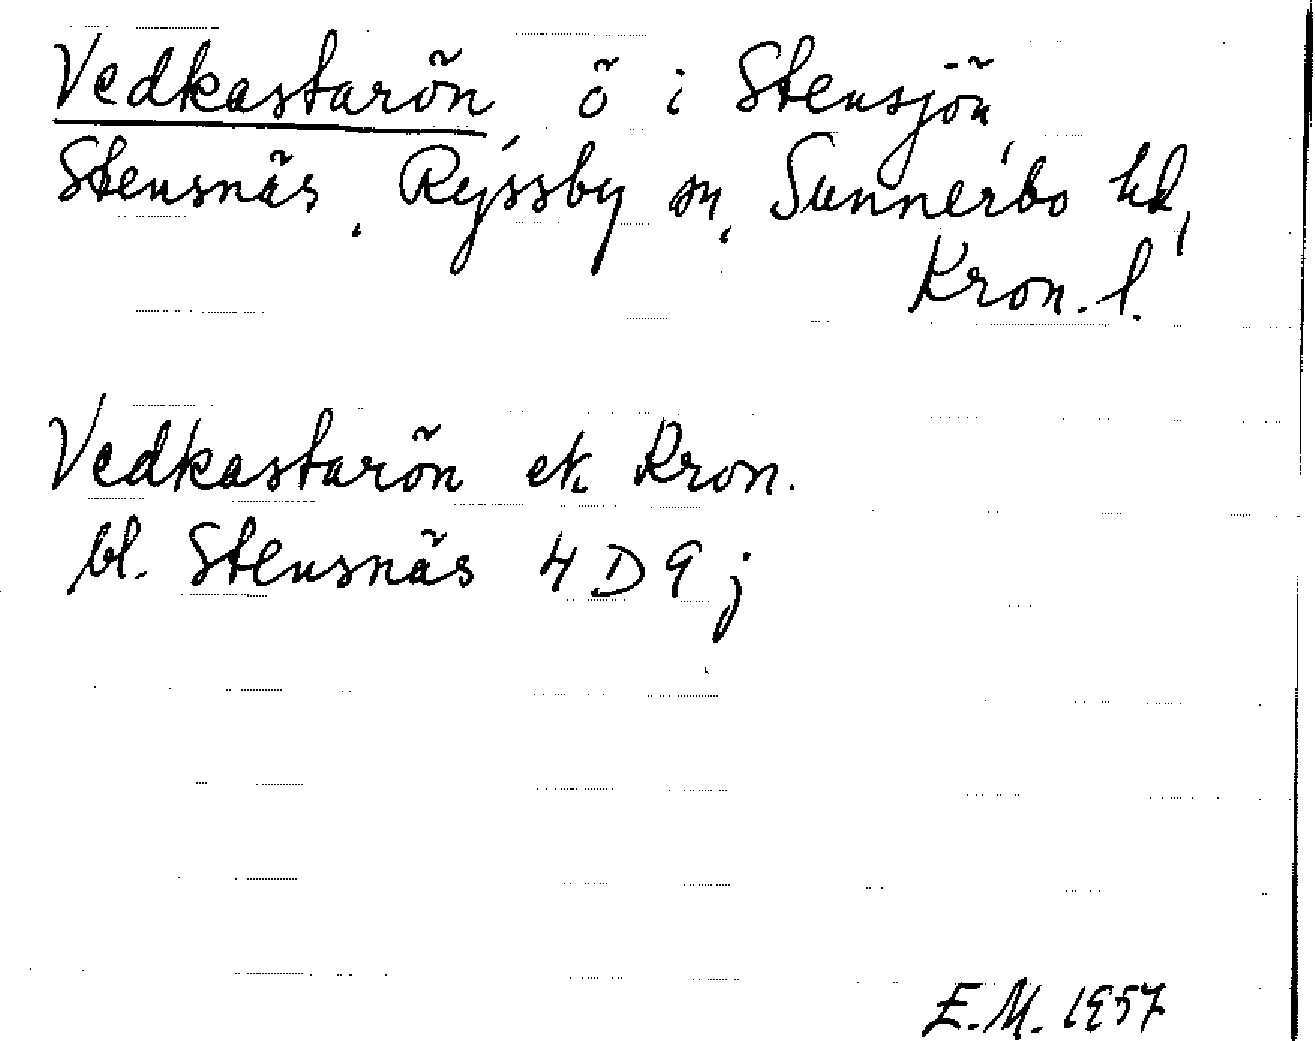 Vedkastarön, ö i Stensjön,
Stensnäs, Ryssby sn, Sunnerbo hd,
Kron. l.
Vedkastarön ek. Kron.
bl. Stensnäs 4D9j
E.M. 1957